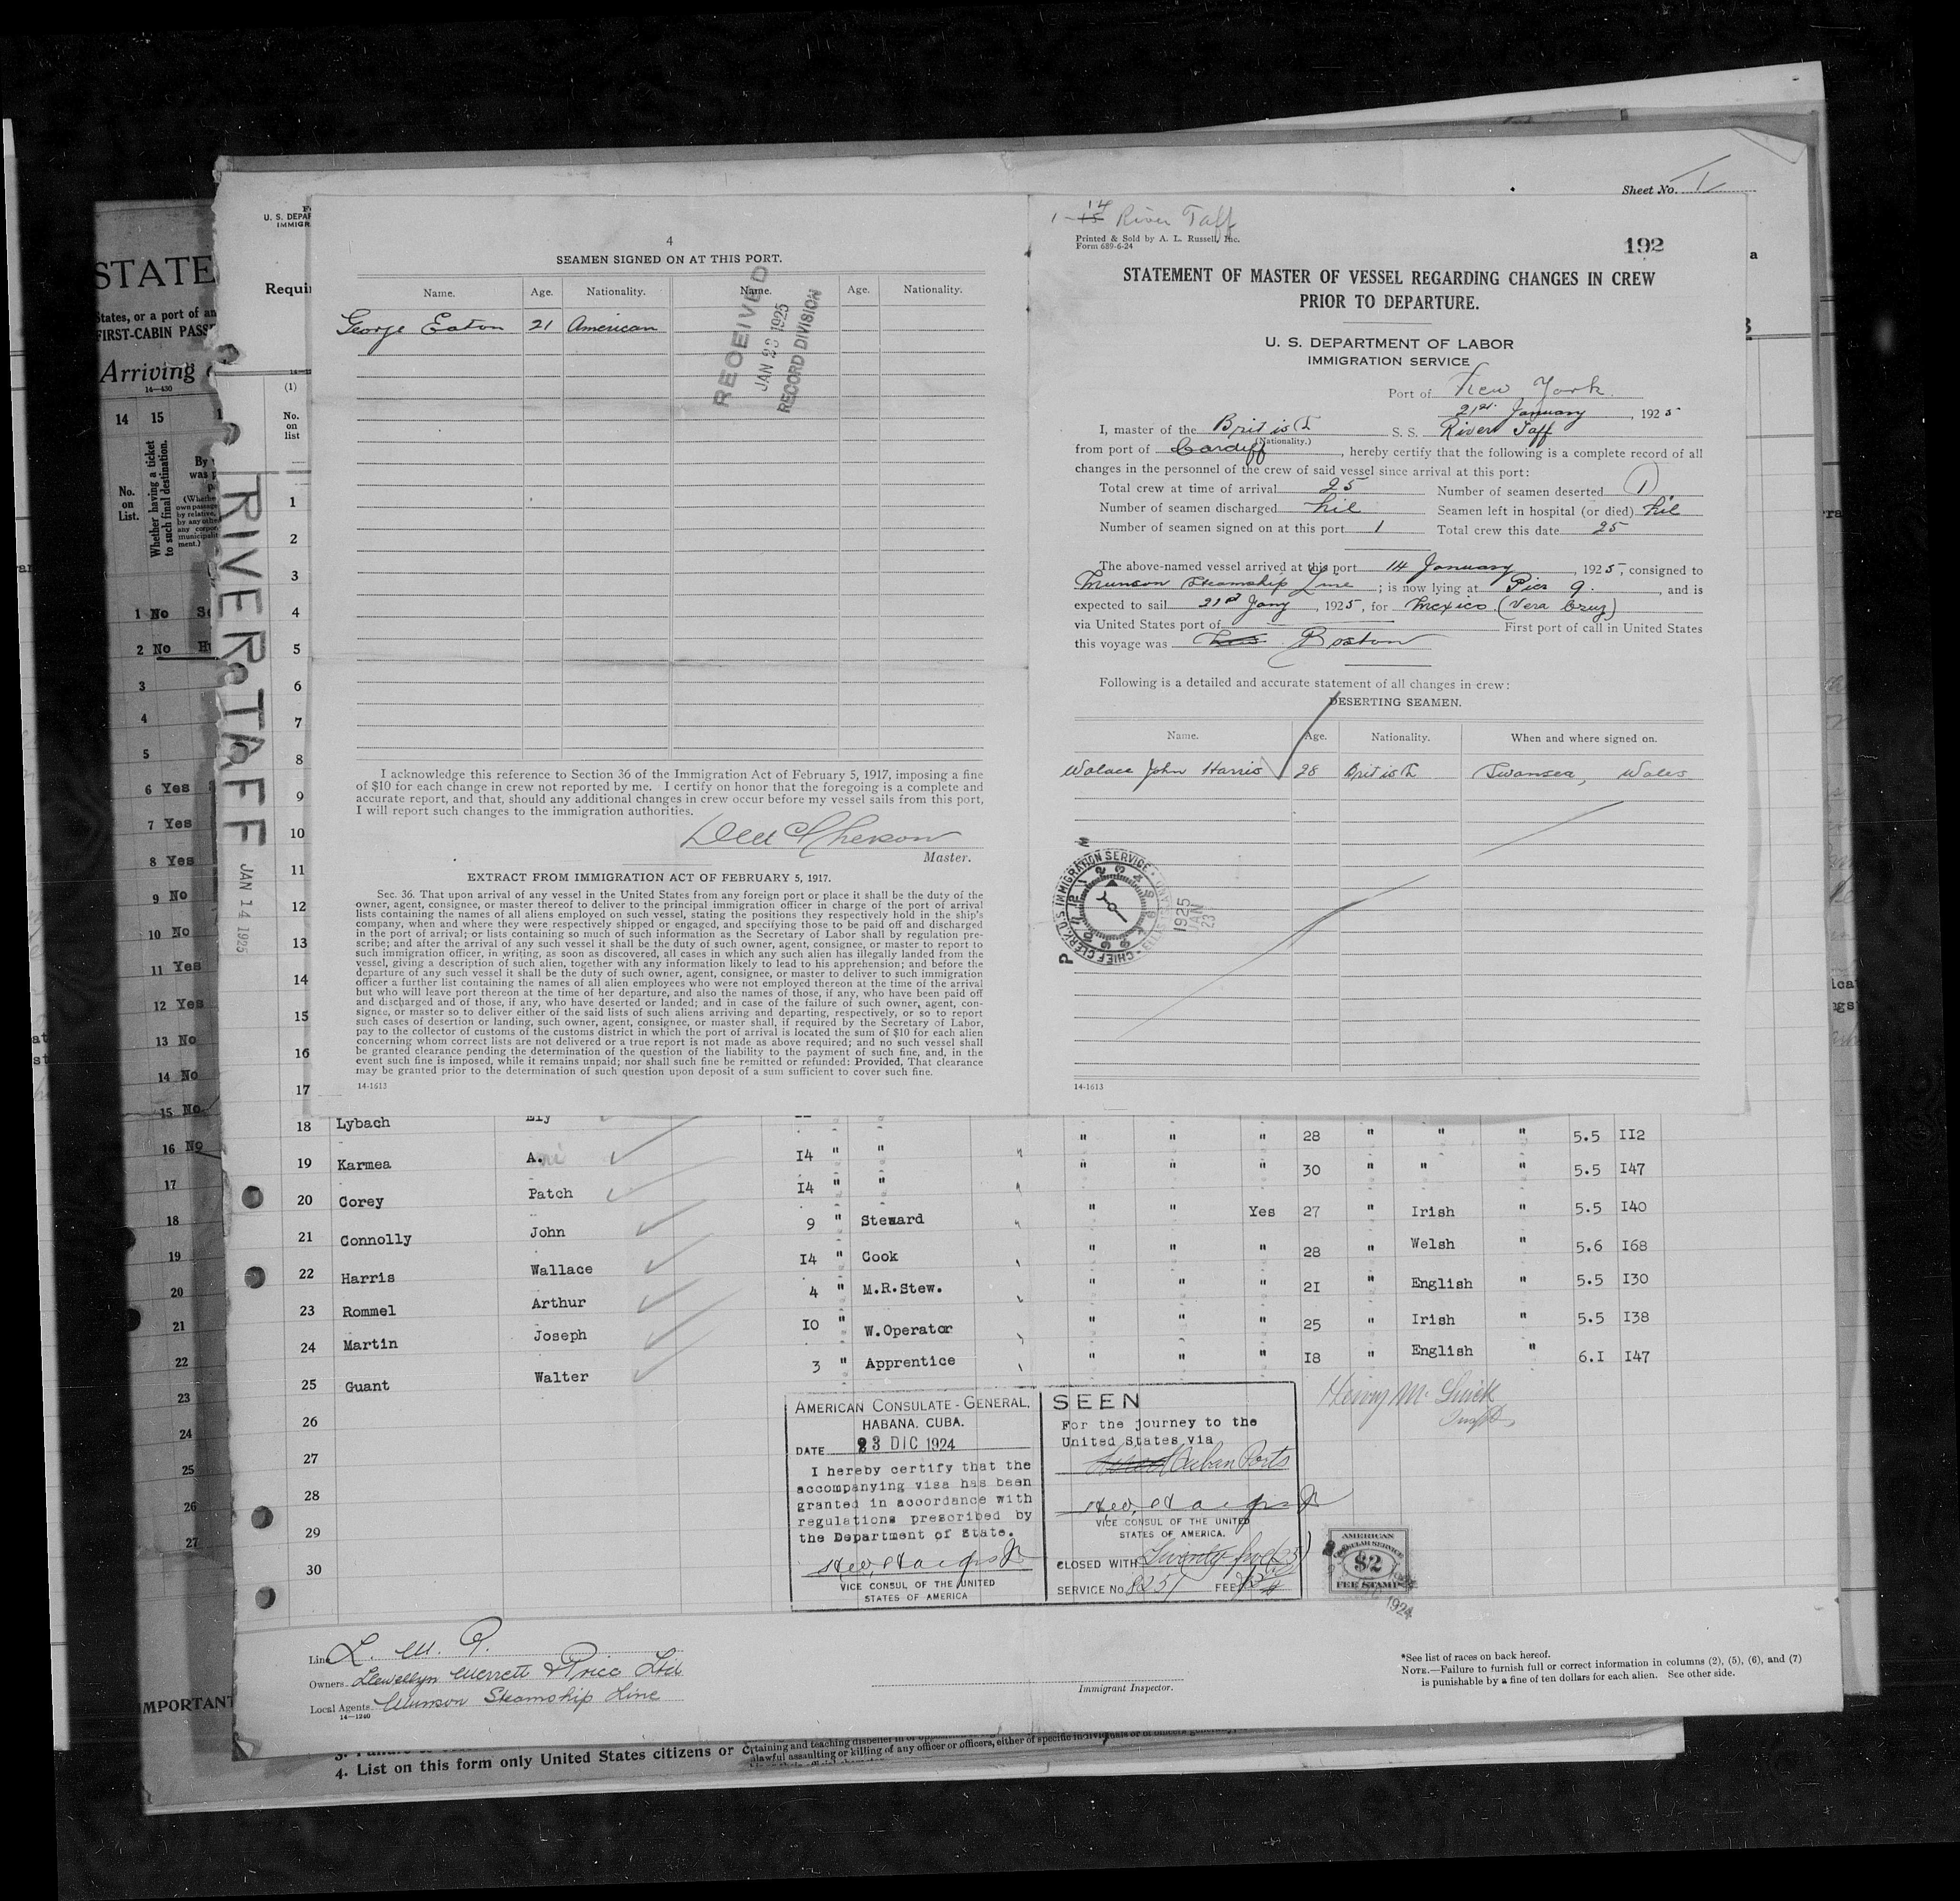 Sheet No. 1
STATE
States, or a port of an
FIRST-CABIN PASS
Arriving
14—430
14 15
No. on List.
Whether having a ticket to such final destination.
By
was p
1 No
2 No
3
4
5
6 Yes
7 Yes
8 Yes
9 No
10 No
11 Yes
12 Yes
13 No
14 No
15 No
16 No
17
18
19
20
21
22
23
24
25
26
27
IMPORTANT
U. S. DEPAR
IMMIGR
Requir
(1)
No.
on
list
RIVER TAFF
JAN 14 1925
1
2
3
4
5
6
7
8
9
10
11
12
13
14
15
16
17
4
SEAMEN SIGNED ON AT THIS PORT.
Name. Age. Nationality. Name. Age. Nationality.
George Eaton 21 American
RECEIVED
JAN 23 1925
RECORD DIVISION
I acknowledge this reference to Section 36 of the Immigration Act of February 5, 1917, imposing a fine
of $10 for each change in crew not reported by me. I certify on honor that the foregoing is a complete and
accurate report, and that, should any additional changes in crew occur before my vessel sails from this port,
I will report such changes to the immigration authorities.
Master.
EXTRACT FROM IMMIGRATION ACT OF FEBRUARY 5, 1917.
Sec. 36. That upon arrival of any vessel in the United States from any foreign port or place it shall be the duty of the
owner, agent, consignee, or master thereof to deliver to the principal immigration officer in charge of the port of arrival
lists containing the names of all aliens employed on such vessel, stating the positions they respectively hold in the ship's
company, when and where they were respectively shipped or engaged, and specifying those to be paid off and discharged
in the port of arrival; or lists containing so much of such information as the Secretary of Labor shall by regulation pre-
scribe; and after the arrival of any such vessel it shall be the duty of such owner, agent, consignee, or master to report to
such immigration officer, in writing, as soon as discovered, all cases in which any such alien has illegally landed from the
vessel, giving a description of such alien, together with any information likely to lead to his apprehension; and before the
departure of any such vessel it shall be the duty of such owner, agent, consignee, or master to deliver to such immigration
officer a further list containing the names of all alien employees who were not employed thereon at the time of the arrival
but who will leave port thereon at the time of her departure, and also the names of those, if any, who have been paid off
and discharged and of those, if any, who have deserted or landed; and in case of the failure of such owner, agent, con-
signee, or master so to deliver either of the said lists of such aliens arriving and departing, respectively, or so to report
such cases of desertion or landing, such owner, agent, consignee, or master shall, if required by the Secretary of Labor,
pay to the collector of customs of the customs district in which the port of arrival is located the sum of $10 for each alien
concerning whom correct lists are not delivered or a true report is not made as above required; and no such vessel shall
be granted clearance pending the determination of the question of the liability to the payment of such fine, and, in the
event such fine is imposed, while it remains unpaid; nor shall such fine be remitted or refunded: Provided, That clearance
may be granted prior to the determination of such question upon deposit of a sum sufficient to cover such fine.
14-1613
1-14 River Taff
Printed & Sold by A. L. Russell, Inc.
Form 689-6-24
192
STATEMENT OF MASTER OF VESSEL REGARDING CHANGES IN CREW
PRIOR TO DEPARTURE.
U. S. DEPARTMENT OF LABOR
IMMIGRATION SERVICE
Port of New York
21st January, 1925
I, master of the British S. S. River Taff
(Nationality.)
from port of Cardiff, hereby certify that the following is a complete record of all
changes in the personnel of the crew of said vessel since arrival at this port:
Total crew at time of arrival 25 Number of seamen deserted 1
Number of seamen discharged nil Seamen left in hospital (or died) nil
Number of seamen signed on at this port 1 Total crew this date 25
The above-named vessel arrived at this port 14 January, 1925, consigned to
Munson Steamship Line; is now lying at Pier 9, and is
expected to sail 21st Jany, 1925, for Mexico (Vera Cruz)
via United States port of First port of call in United States
this voyage was Boston
Following is a detailed and accurate statement of all changes in crew:
DESERTING SEAMEN.
Name. Age. Nationality. When and where signed on.
Walace John Harris 28 British Swansea, Wales
CHIEF CLERK, U.S. IMMIGRATION SERVICE
1925
JAN
23
14-1613
18 Lybach Ely " " " 28 " " " 5.5 II2
19 Karmea A. I4 " " " " " 30 " " " 5.5 I47
20 Corey Patch I4 " "
21 Connolly John 9 " Steward " " Yes 27 " Irish " 5.5 I40
22 Harris Wallace I4 " Cook " " " 28 " Welsh " 5.6 I68
23 Rommel Arthur 4 " M.R.Stew. " " " 2I " English " 5.5 I30
24 Martin Joseph IO " W.Operator " " " 25 " Irish " 5.5 I38
25 Guant Walter 3 " Apprentice " " " I8 " English " 6.I I47
26
27
28
29
30
AMERICAN CONSULATE-GENERAL,
HABANA, CUBA.
DATE 23 DIC 1924
I hereby certify that the
accompanying visa has been
granted in accordance with
regulations prescribed by
the Department of State.
VICE CONSUL OF THE UNITED
STATES OF AMERICA
SEEN
For the journey to the
United States via
Cuban Ports
VICE CONSUL OF THE UNITED
STATES OF AMERICA.
CLOSED WITH Twenty five (25)
SERVICE No. 8251 FEE
AMERICAN
CONSULAR SERVICE
$2
FEE STAMP
1924
Line L. M. P.
Owners Llewellyn Merrett & Price Ltd
Local Agents Munson Steamship Line
14—1240
Immigrant Inspector.
*See list of races on back hereof.
NOTE.—Failure to furnish full or correct information in columns (2), (5), (6), and (7)
is punishable by a fine of ten dollars for each alien. See other side.
4. List on this form only United States citizens or